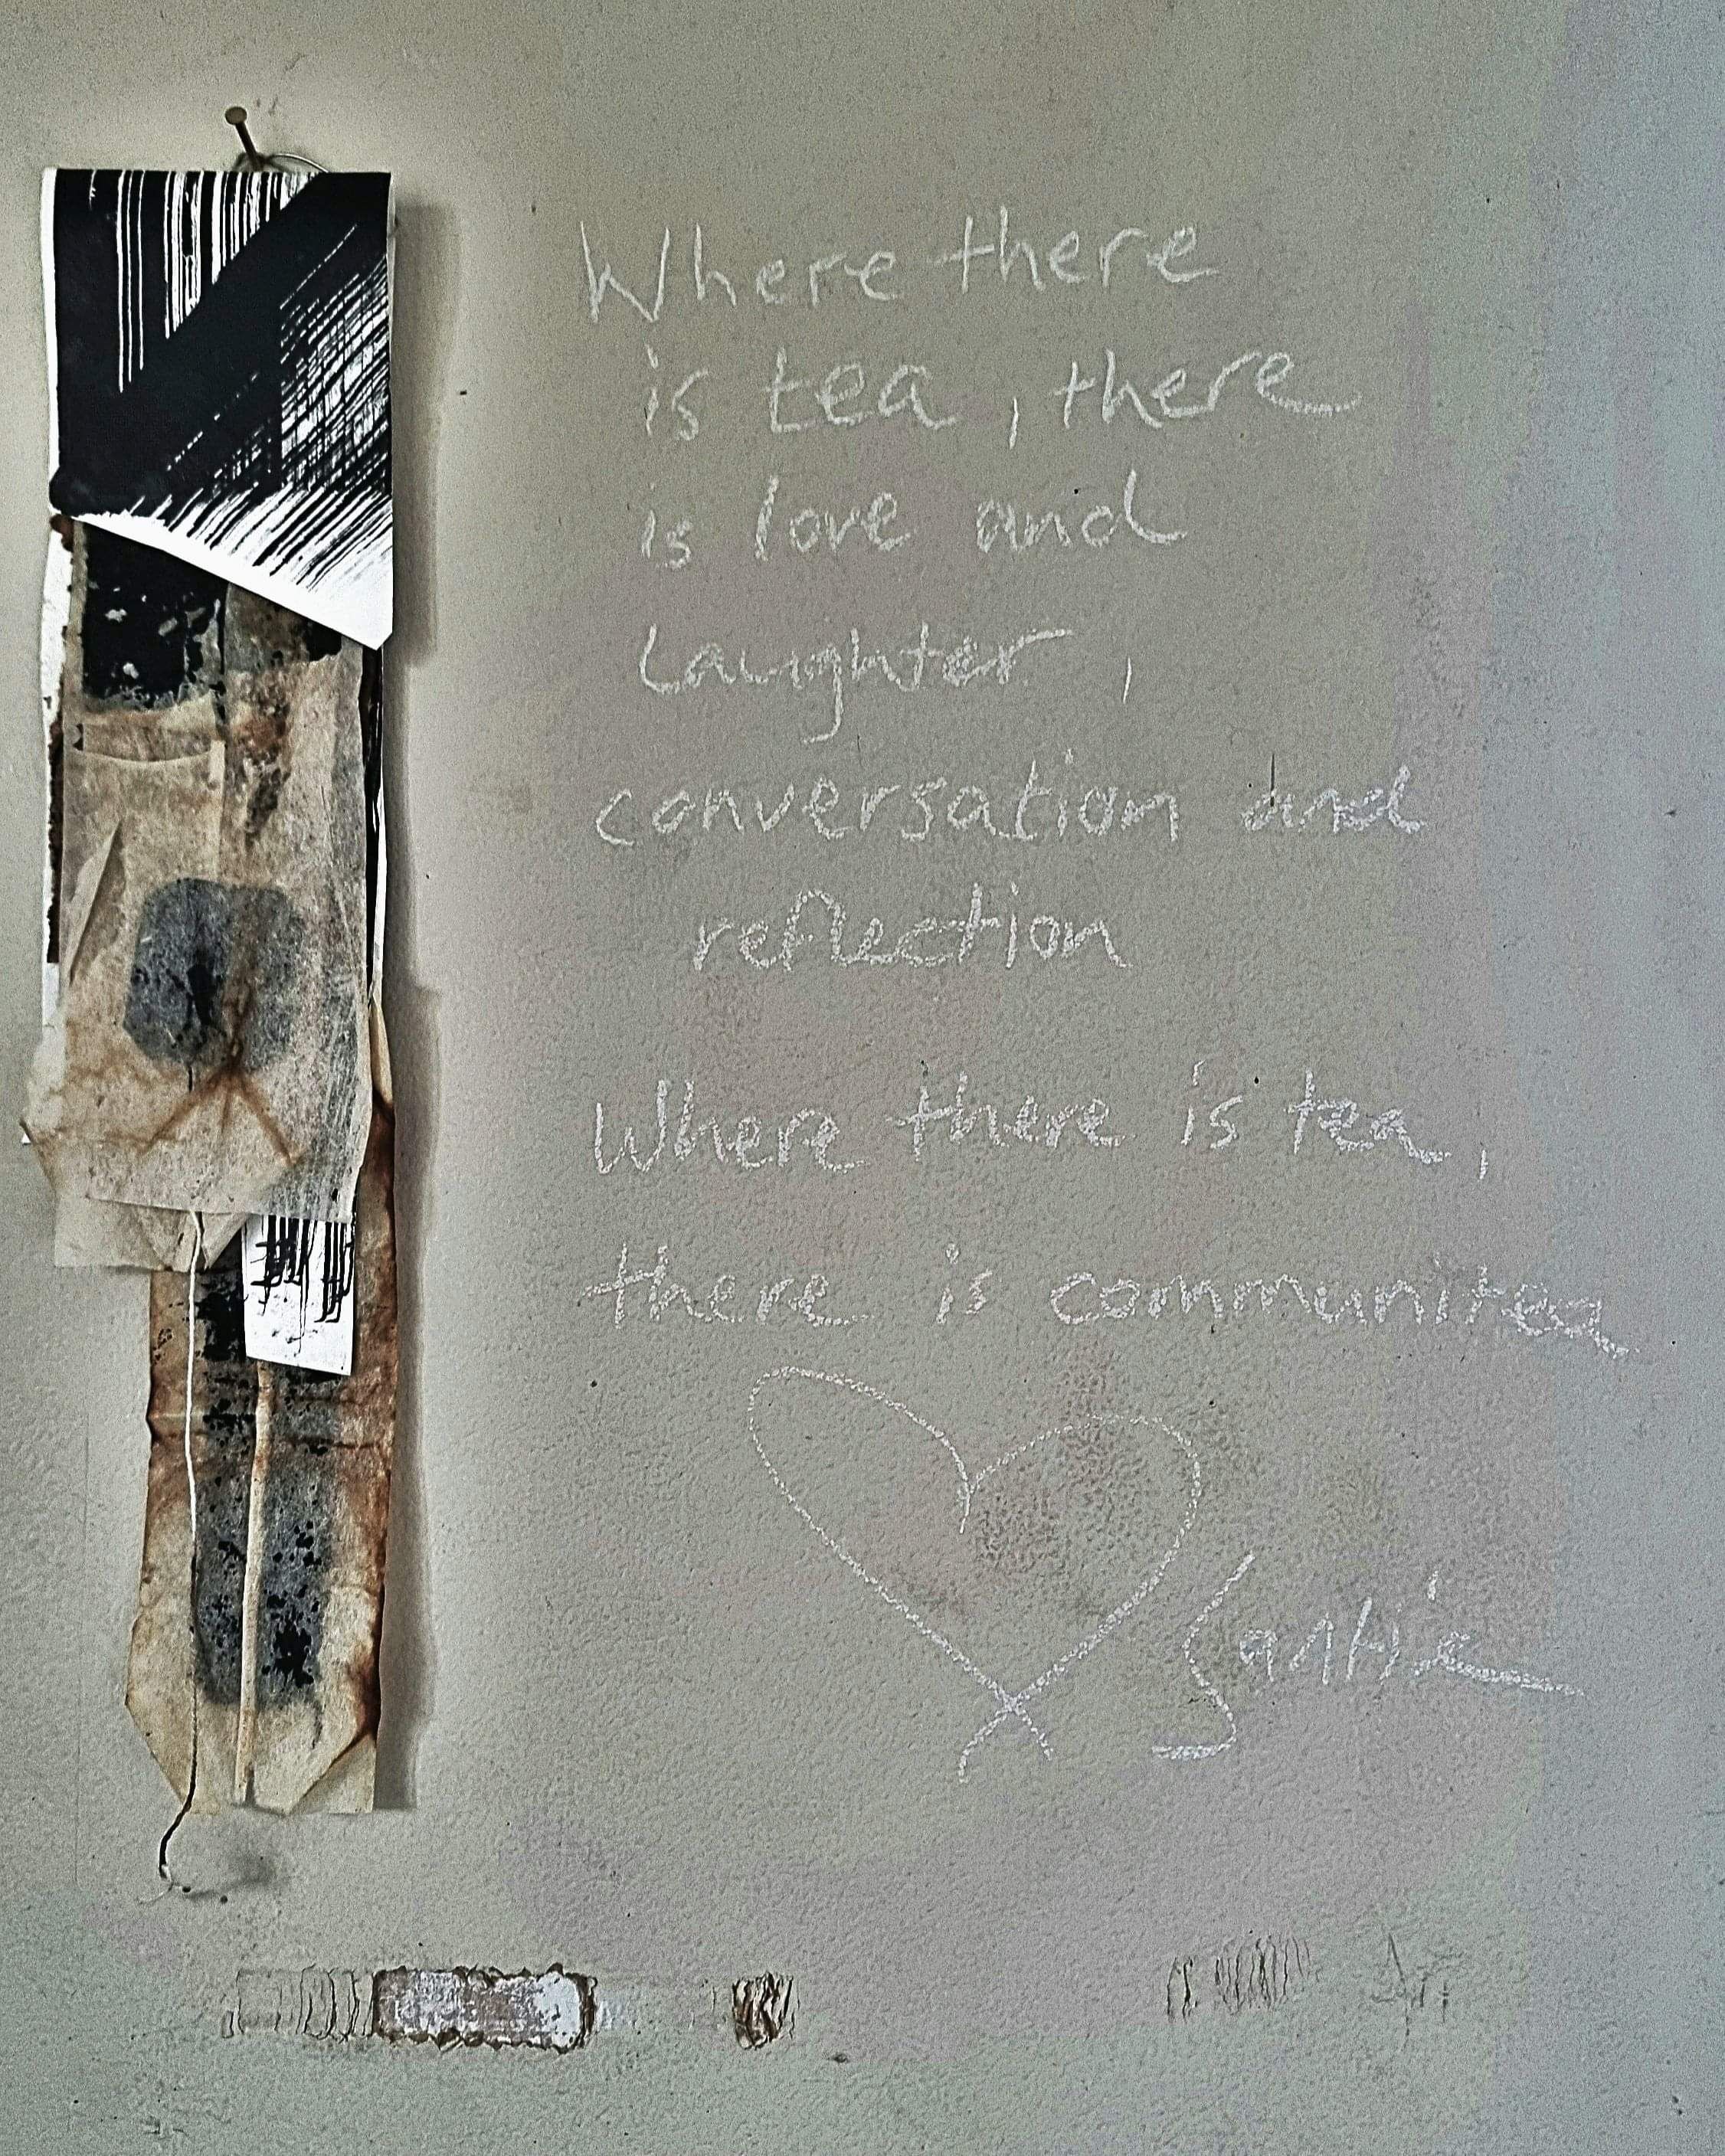 Where there
is tea, there
is love and
laughter,
conversation and
reflection
Where there is tea,
there is communitea
Santie